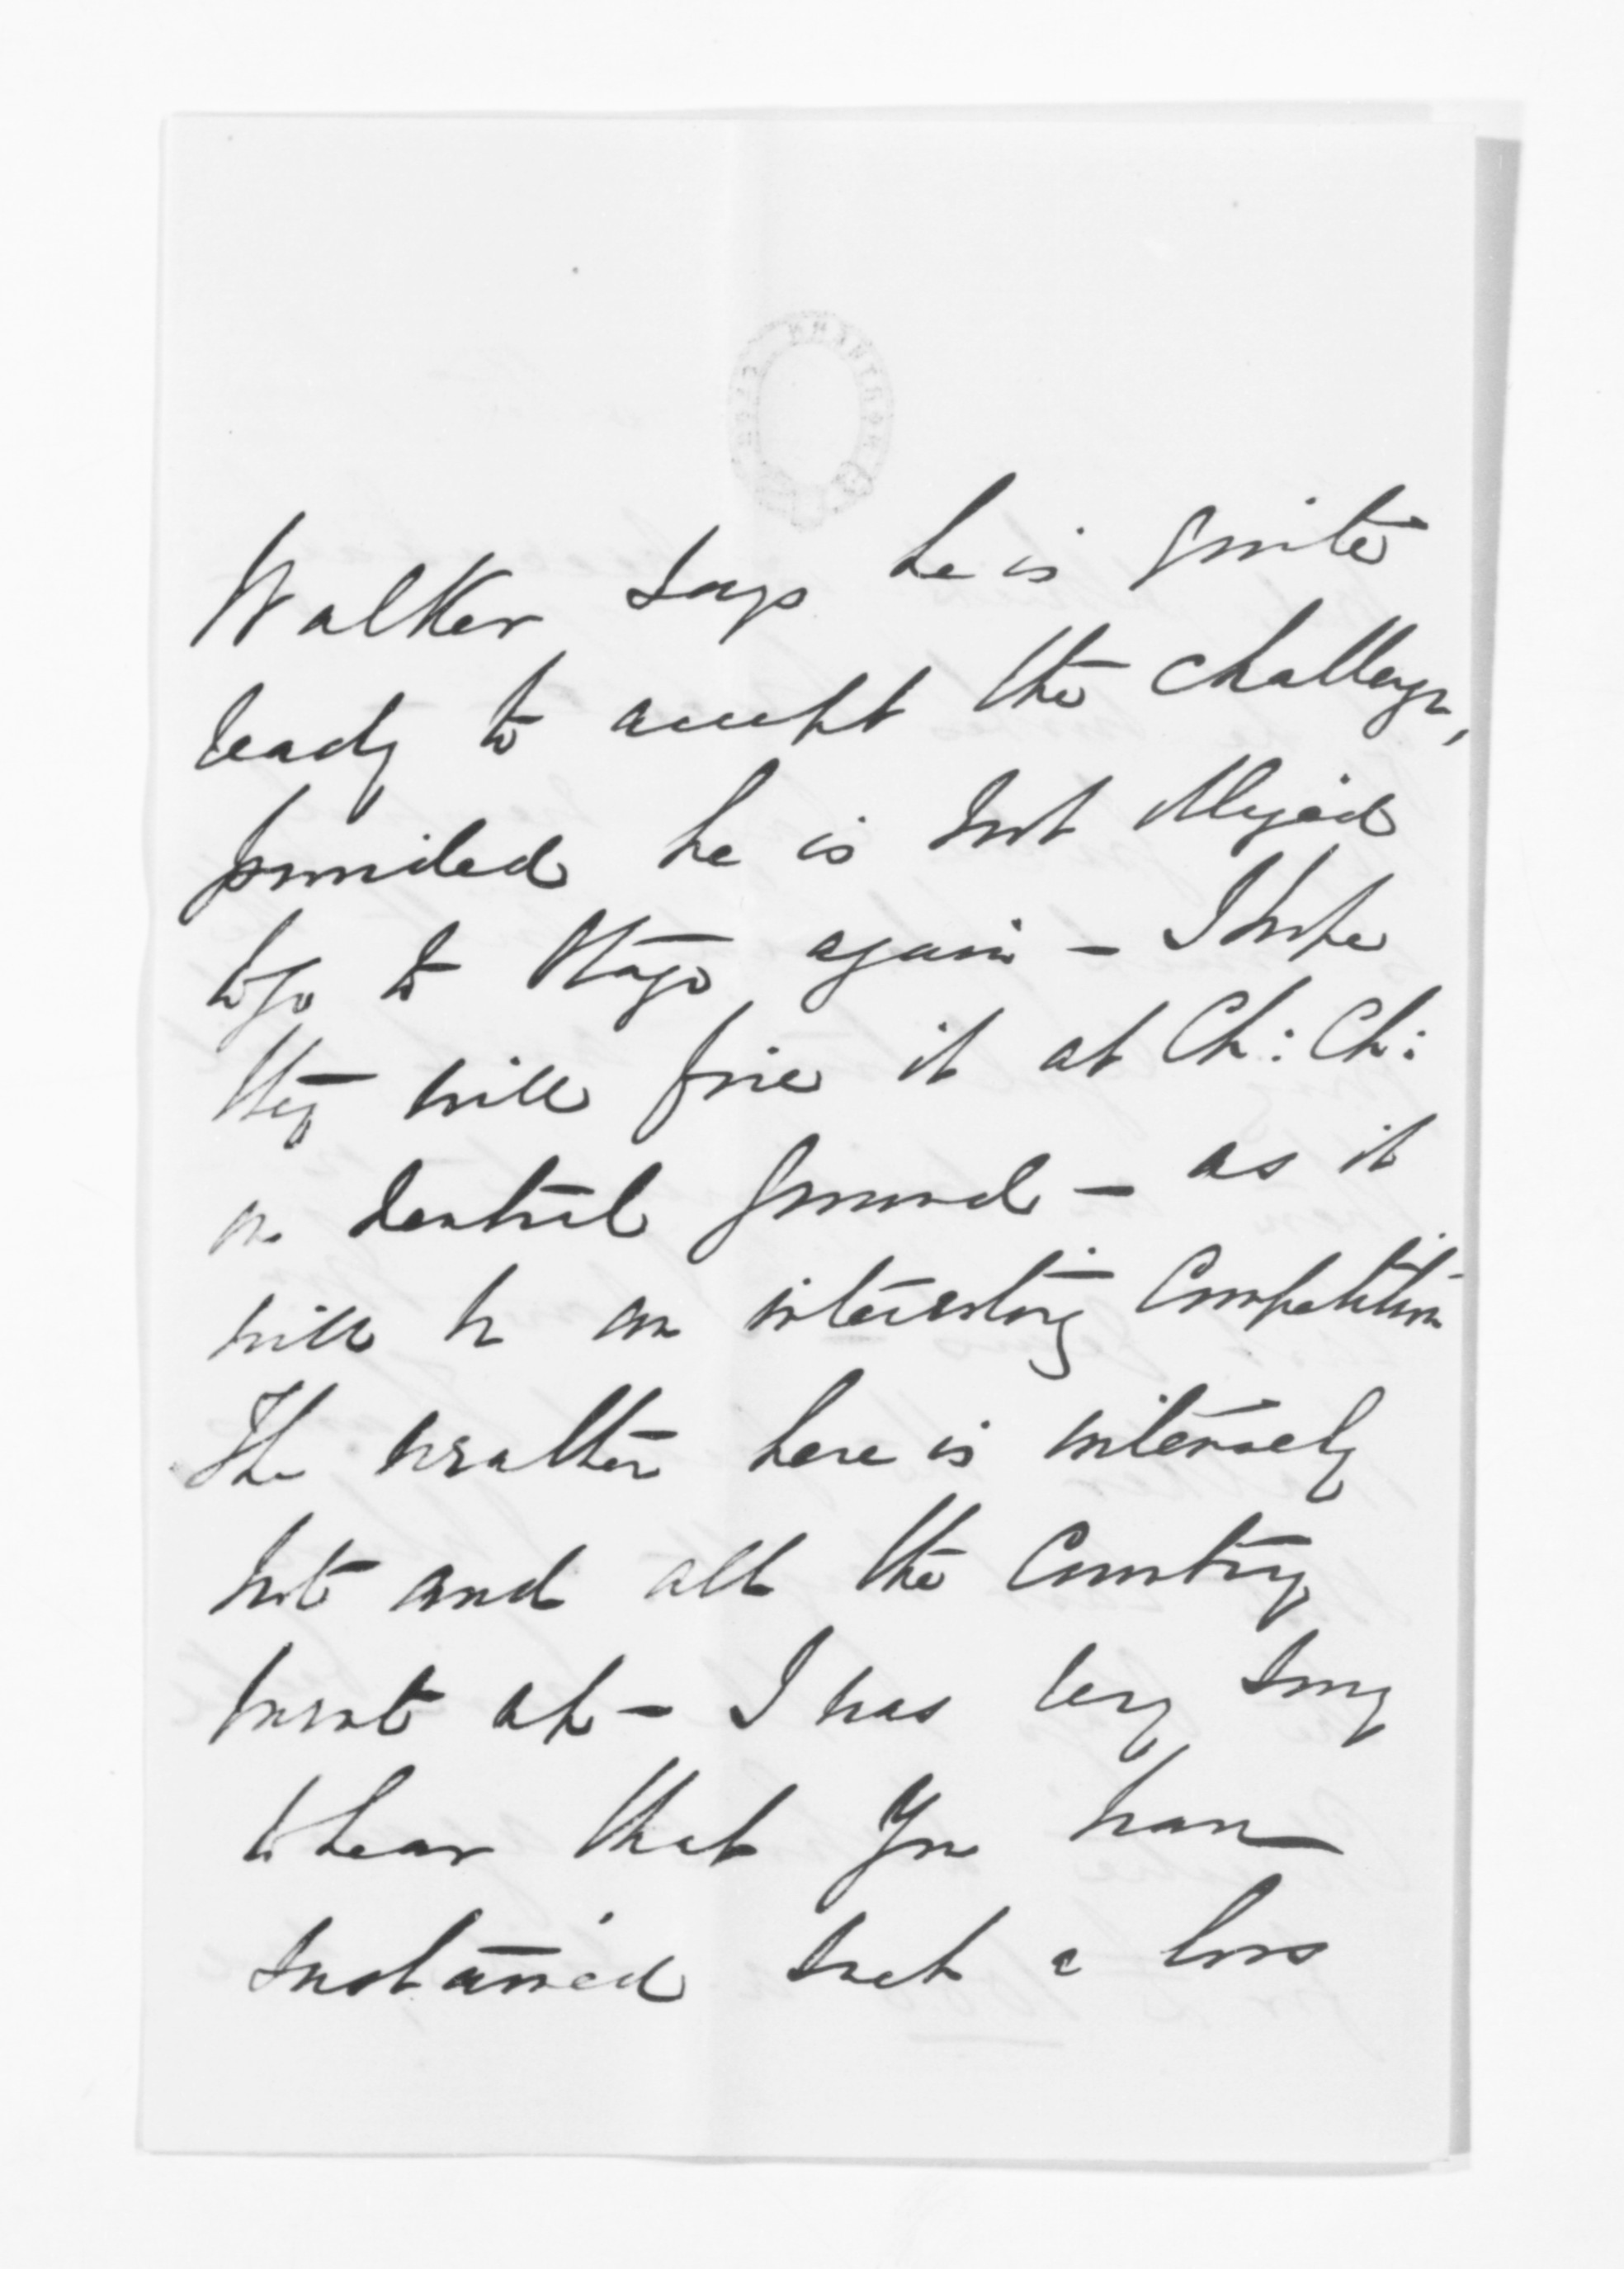 Walker says he is quite
ready to accept the challenge,
provided he is not obliged
to go to Otago again – I hope
they will fire it at Ch: Ch:
on neutral ground – as it
will be an interesting Competition
The weather here is intensely
hot and all the Country
burnt up – I was very sorry
to hear that you have
sustained such a loss